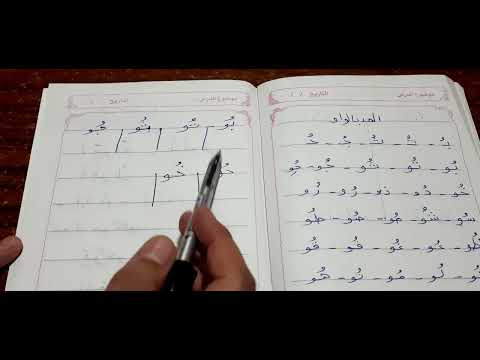 موضوع الدرس التاريخ / /
المد بالواو
بُـ - تُـ - ثُـ - جُـ - حُـ
بُو - تُو - ثُو - جُو - حُو
خُو - دُو - ذُو - رُو - زُو
سُو - شُو - صُو - ضُو - طُو
ظُو - عُو - غُو - فُو - قُو
لُو - مُو - نُو - هُو
موضوع الدرس التاريخ / /
بُو تُو ثُو جُو
حُو خُو